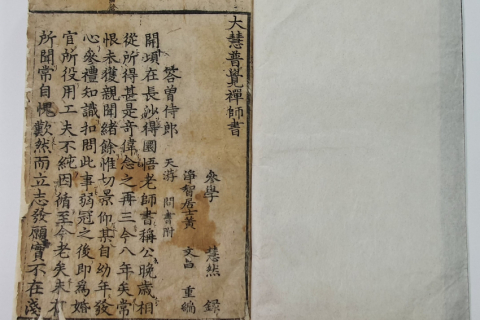 大慧普覺禪師書
參學 慧然 錄
淨智居士黃 文昌 重編
答曾侍郎 天游 問書附
開頃在長沙得圜悟老師書稱公晚歲相
從所得甚是奇偉念之再三今八年矣常
恨未獲親聞緒餘惟切景仰某自幼年發
心參禮知識扣問此事弱冠之後即為婚
宦所役用工夫不純因循至今老矣未有
所聞常自愧歎然而立志發願實不在淺